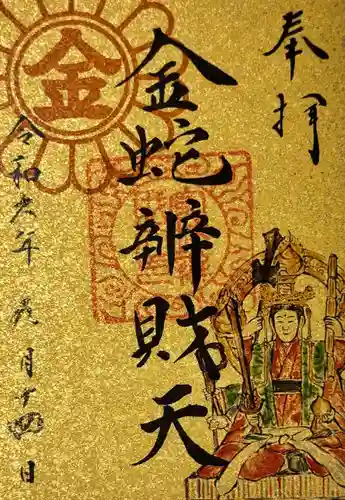 奉拝
金蛇辨財天
金
令和六年 月十四日